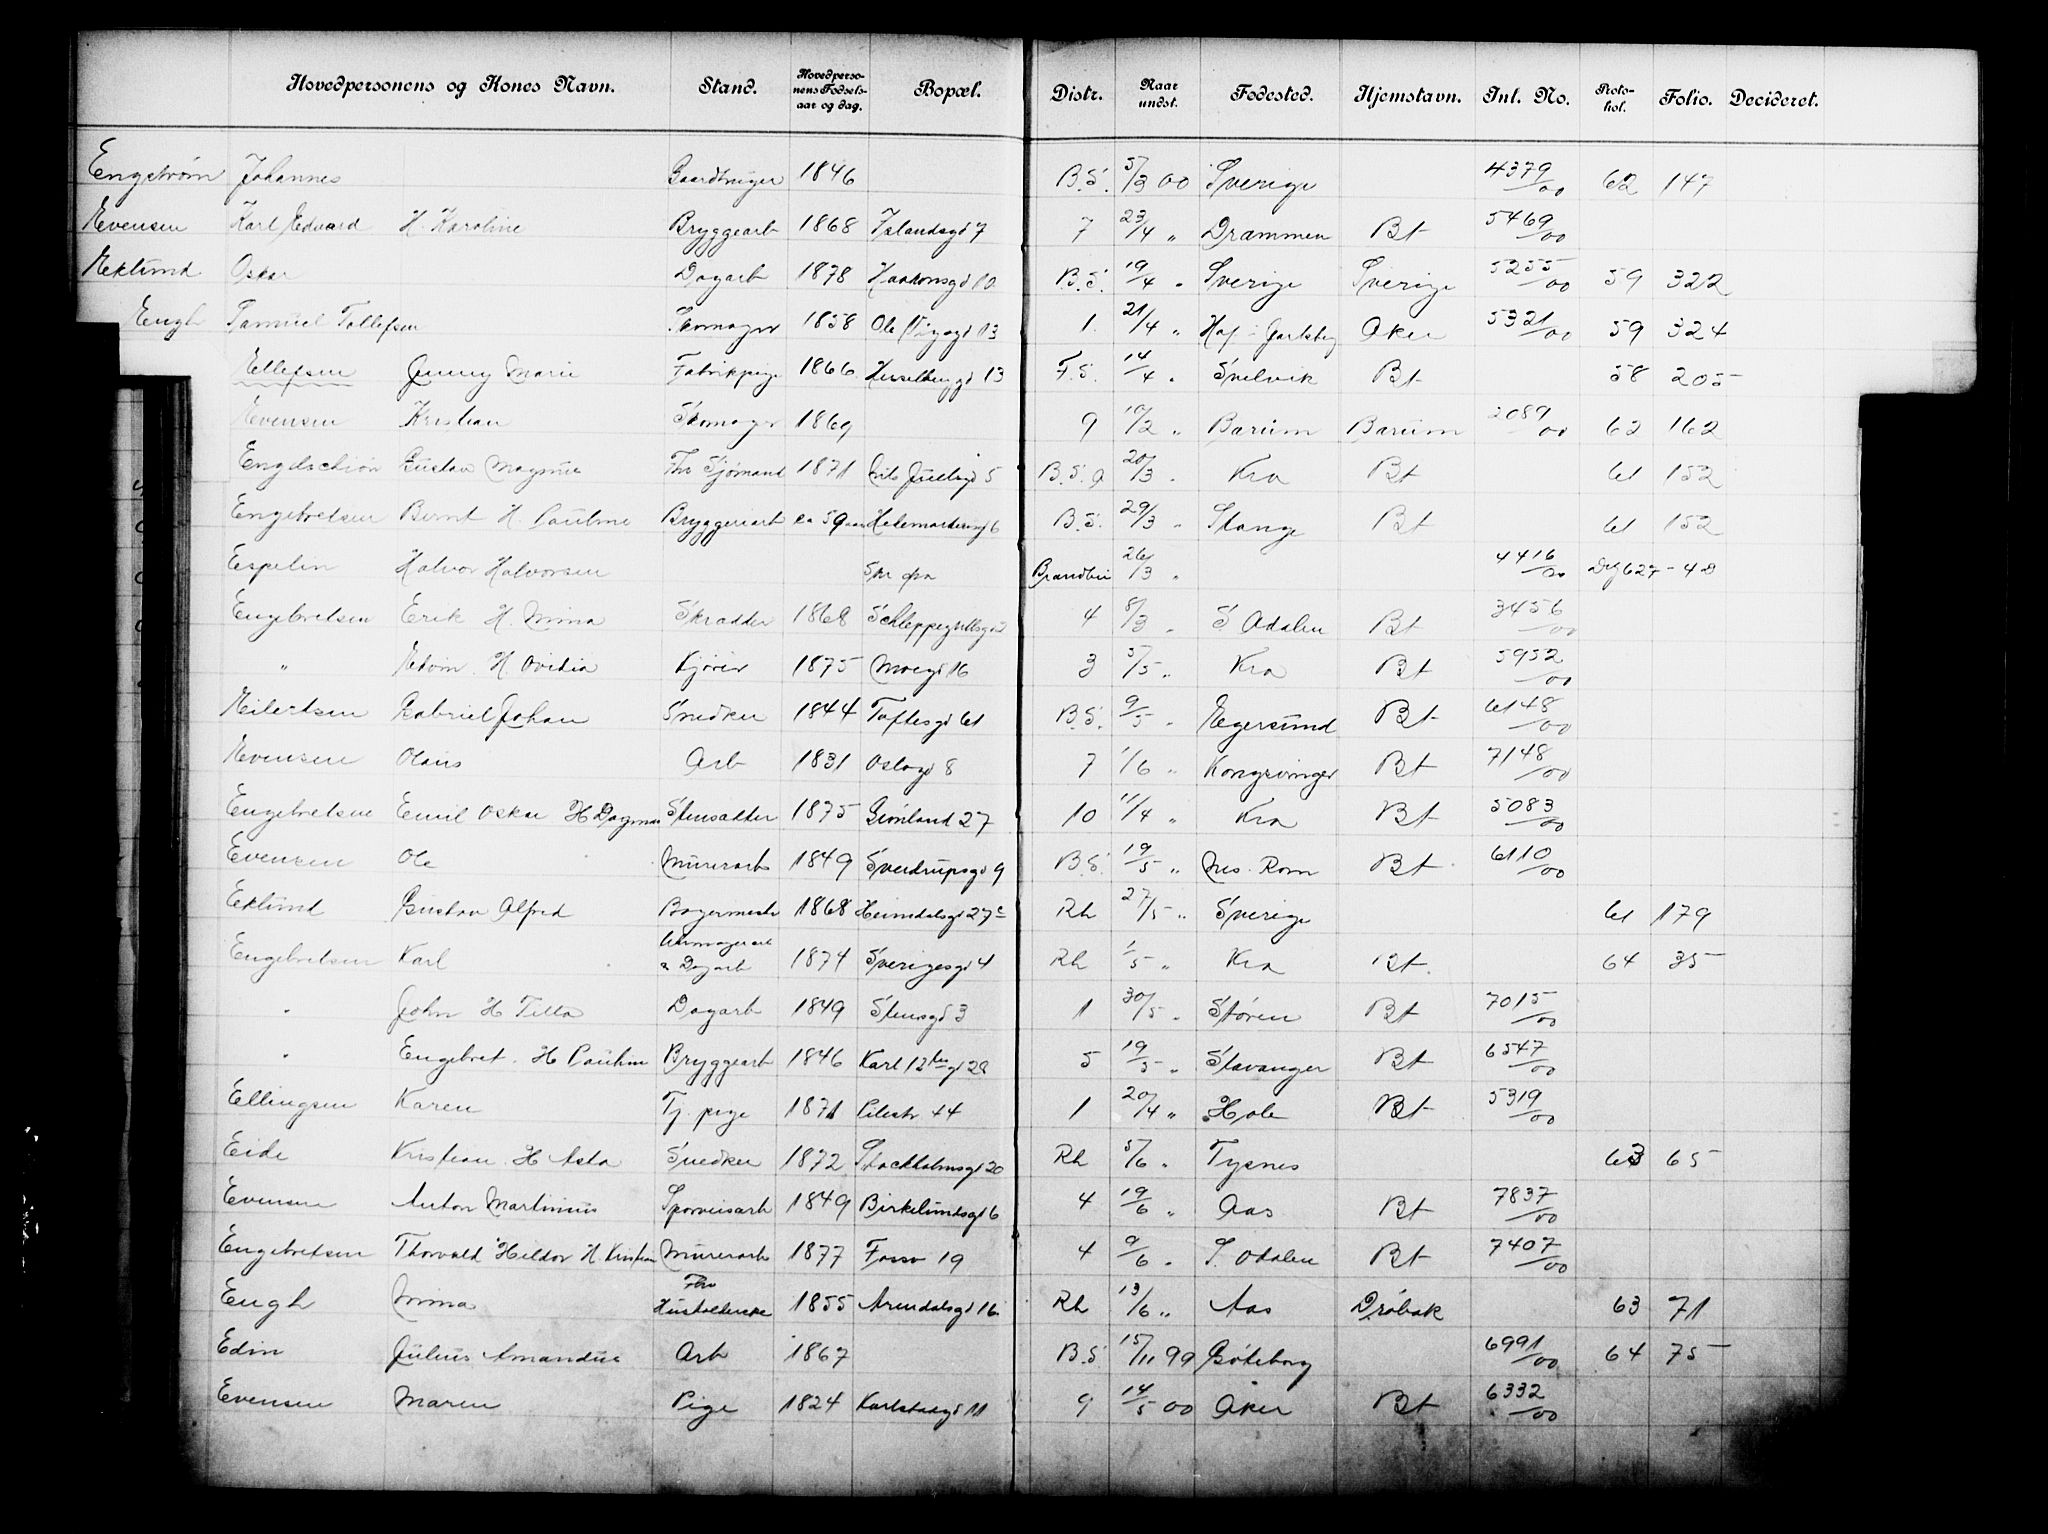 Hovedpersonens og Kones Navn. Stand. Hovedpersonens Fødselsaar og dag. Bopæl. Distr. Naar undst. Fødested. Hjemstavn. Int. No. Protokol. Folio. Decideret.
Engstrøm Johannes 1846 B.S. 5/3 00 Sverige 4379/00 62 147
Evensen Karl Edvard H. Karoline Bryggearb 1868 Islandsgd 7 7 23/4 „ Drammen Bt 5469/00
Eklund Oskar Dagarb 1878 Haakonsgd 10 B.S. 19/4 „ Sverige Sverige 5255/00 59 322
Engh Samuel Tollefsen Skomager 1858 Ole Vigsgd 13 1 21/4 „ Hof i Jarlsberg Aker 5321/00 59 324
Ellefsen Jenny Marie Fabrikpige 1866 Hesselberggd 13 F.S. 14/4 „ Svelvik Bt 58 205
Evensen Kristian Skomager 1869 9 10/2 „ Barum Barum 2089/00 62 162
Engelschiøn Gustav Magnus Fhv Sjømand 1871 Nils Juelsgd 5 B.S. 9 20/3 „ Kra Bt 61 152
Engebretsen Bernt H. Pauline Bryggeriarb ca 59 aar Hedemarkensgd 6 B.S. 29/3 „ Stange Bt 61 152
Espelin Halvor Halvorsen Skr fra Brandbu 26/3 „ 4416/00
Engebretsen Erik H. Mina Skrædder 1868 Schleppegrellsgd 4 8/3 „ S Odalen Bt 3456/00
„ Edvin H. Ovidia Kjører 1875 Moegd 16 3 5/5 „ Kra Bt 5952/00
Eilertsen Gabriel Johan Snedker 1844 Toftesgd 61 B.S. 9/5 „ Egersund Bt 6148/00
Evensen Olaus Arb 1831 Oslogd 8 7 1/6 „ Kongsvinger Bt 7148/00
Engebretsen Emil Oskar H Dagmar Stensætter 1875 Grønland 27 10 11/4 „ Kra Bt 5083/00
Evensen Ole Murerarb 1849 Sverdrupsgd 9 B.S. 19/5 „ Nes. Rom Bt 6110/00
Eklund Gustav Alfred Bagermestr 1868 Heimdalsgd 27c Rh 27/5 „ Sverige 61 179
Engebretsen Karl & Dagarb 1874 Sverigesgd 4 Rh 1/5 „ Kra Bt. 64 35
„ John H Tilla Dagarb 1849 Stensgd 3 1 30/5 „ Støren Bt 7015/00
„ Engebret H Pauline Bryggearb 1846 Karl 12tes gd 28 5 19/5 „ Stavanger Bt 6547/00
Ellingsen Karen Tj. pige 1871 Pilestr 44 1 20/4 „ Hole Bt 5319/00
Eide Kristian H Asta Snedker 1872 Stockholmsgd 20 Rh 5/6 „ Tysnes 63 65
Evensen Anton Martinius Sporveisarb 1849 Birkelundsgd 6 4 19/6 „ Aas Bt 7837/00
Engebretsen Thorvald Hildor H. Kristian Murerarb 1877 Fossv 19 4 9/6 „ S. Odalen Bt 7407/00
Engh Mina Fhv Husholderske 1855 Arendalsgd 16 Rh 13/6 „ Aas Drøbak 63 71
Edin Julius Amandus Arb 1867 B.S 15/11 99 Gøteborg 6991/00 64 75
Evensen Maren Pige 1824 Karlstadgd 11 9 14/5 00 Aker Bt 6332/00